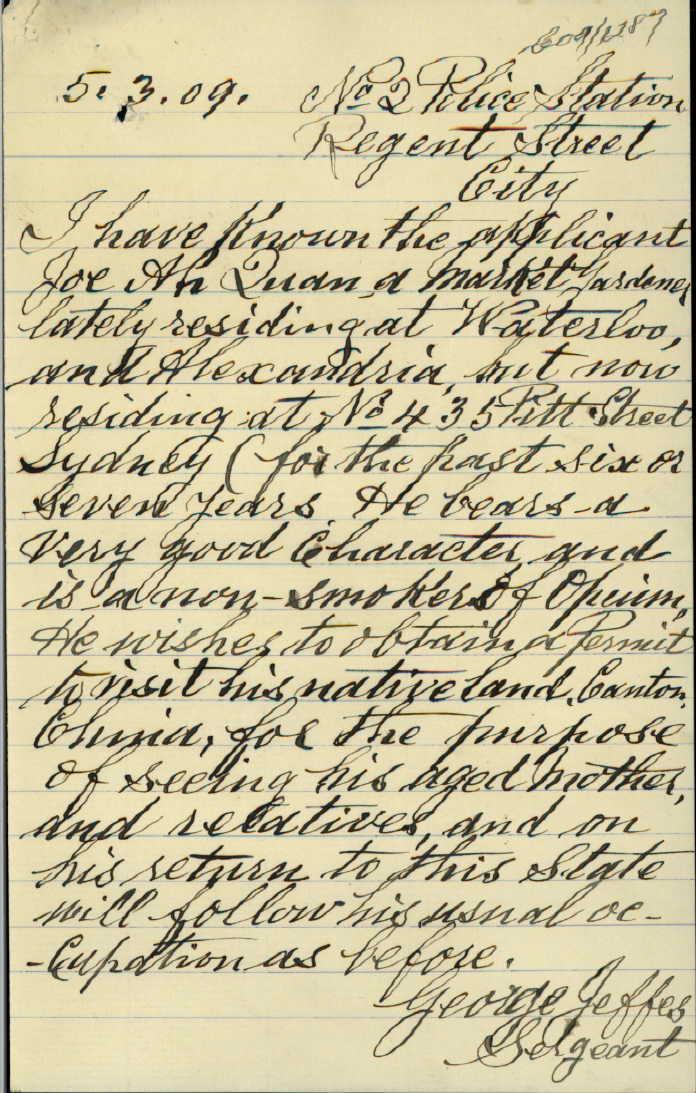 5. 3. 09. No 2 Police Station
Regent Street
City
I have known the applicant
Joe Ah Quan, a market Gardener
lately residing at Waterloo,
and Alexandria, but now
residing at No 435 Pitt Street
Sydney (for the past six or
seven years He bears a
very good Character, and
is a non-smoker of Opium,
He wishes to obtain a Permit
to visit his native land, Canton,
China, for the purpose
of seeing his aged mother,
and relatives, and on
his return to this State
will follow his usual oc-
-cupation as before.
George Jeffes
Sergeant